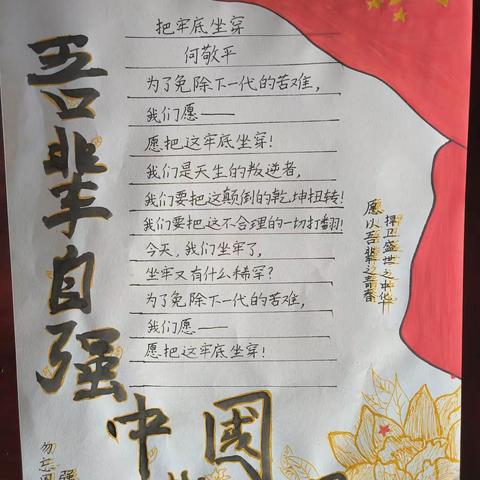 把牢底坐穿
何敬平
为了免除下一代的苦难，
我们愿——
愿把这牢底坐穿！
我们是天生的叛逆者，
我们要把这颠倒的乾坤扭转！
我们要把这不合理的一切打翻！
今天，我们坐牢了，
坐牢又有什么稀罕？
为了免除下一代的苦难，
我们愿——
愿把这牢底坐穿！
愿以吾辈之青春
捍卫盛世之中华
吾辈自强
中国
勿忘国
强